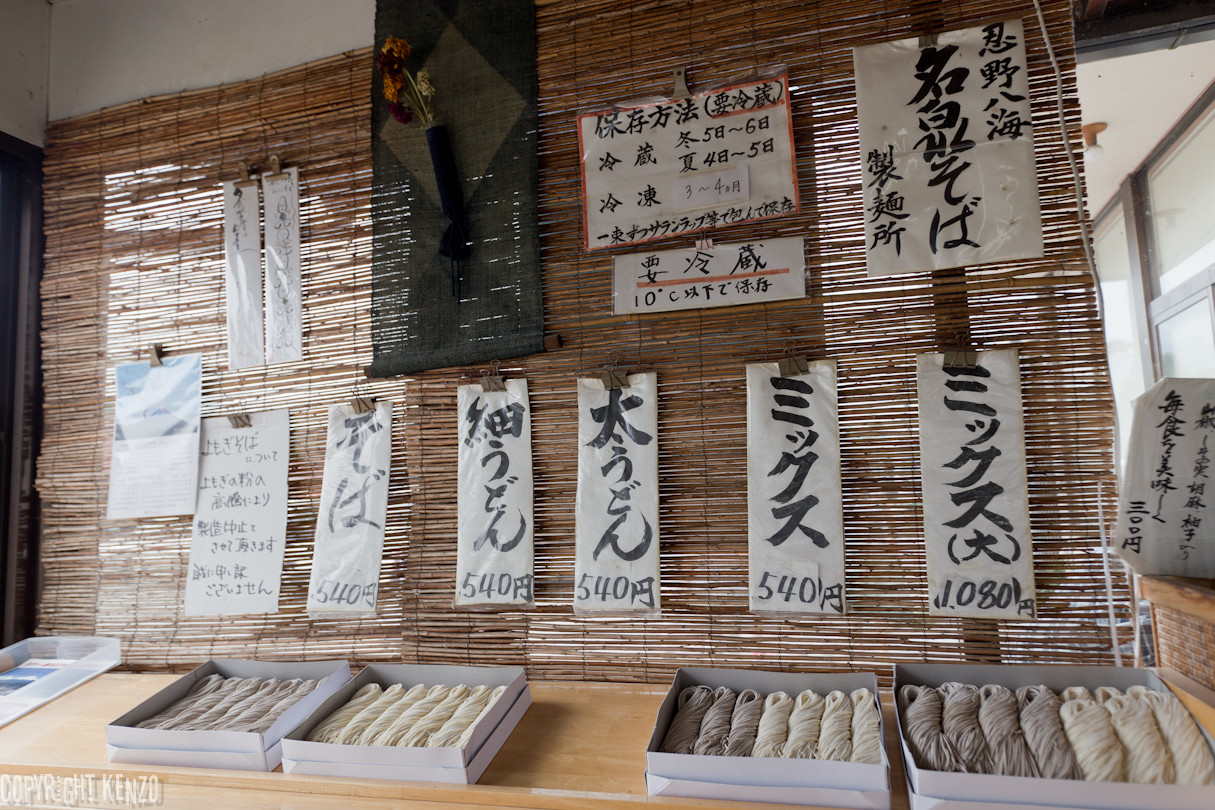 保存方法(要冷蔵)
冷蔵 冬5日～6日
夏4日～5日
冷凍 3～4ヵ月
一束ずつサランラップ等で包んで保存
要冷蔵
10°C以下で保存
忍野八海
名代そば
製麺所
よもぎそば
について
よもぎの粉の
高騰により
製造中止と
させて頂きます
誠に申し訳
ございません
そば
540円
細うどん
540円
太うどん
540円
ミックス
540円
ミックス
(大)
1.080円
胡麻 柚子
毎食を美味しく
三〇〇円
COPYRIGHT KENZO